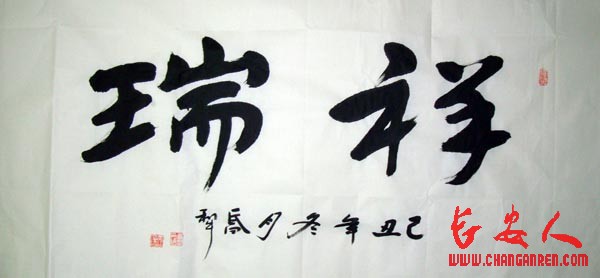 祥瑞
己丑年冬月
长安人
WWW.CHANGANREN.COM